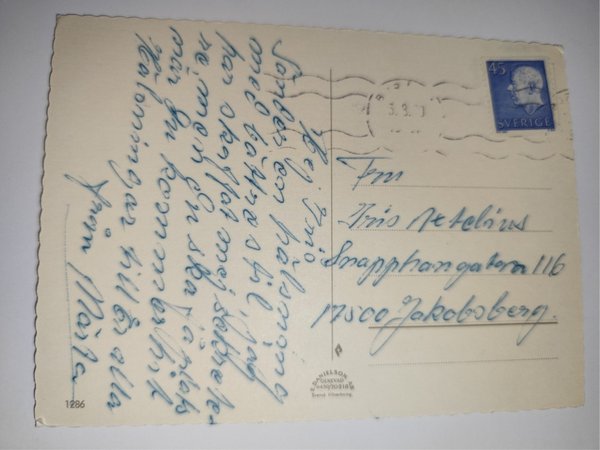 Hej Iris
Sänder en hälsning
med bättre stil, jag
har skaffat mej
men Du ska få
när Du kommer hit
Hälsningar till Er alla
från Märta
45
SVERIGE
Fru
Iris Zetelius
Snapphanegatan 116
17500 Jakobsberg.
DANIELSON
1286